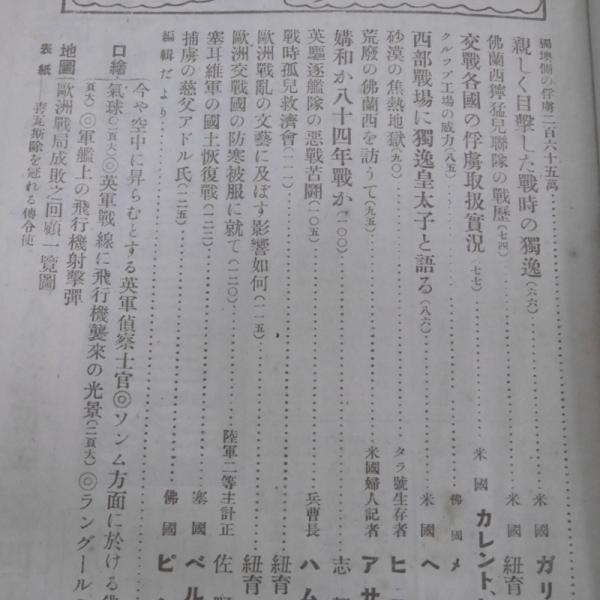 獨墺側の俘虜二百六十五萬
親しく目擊した戰時の獨逸(六六) 米國 ガリ
佛蘭西獰猛兒聯隊の戰歷(七四) 米國 紐育
交戰各國の俘虜取扱實況(七七) 米國 カレント、
クルップ工場の威力(八五) 佛國 メ
西部戰場に獨逸皇太子と語る(八六) 米國 ヘ
砂漠の焦熱地獄(九〇) タラ號生存者 ヒ
荒廢の佛蘭西を訪うて(九五) 米國婦人記者 アサ
媾和か八十四年戰か(一〇〇) 志
英驅逐艦隊の惡戰苦鬪(一〇五) 兵曹長 ハム
戰時孤兒救濟會(一一一) 紐育
歐洲戰亂の文藝に及ぼす影響如何(一一五) 紐育
歐洲交戰國の防寒被服に就て(一二〇) 陸軍二等主計正 佐
塞耳維軍の國土恢復戰(一二二) 塞國 ベル
捕虜の慈父アドル氏(一二五) 佛國 ピ
編輯だより
口繪 今や空中に昇らむとする英軍偵察士官◎ソンム方面に於ける佛
氣球(二頁大)◎英軍戰線に飛行機襲來の光景(二頁大)◎ラングール
頁大)◎軍艦上の飛行機射擊彈
地圖 歐洲戰局成敗之回顧一覽圖
表紙 毒瓦斯除を冠れる傳令使